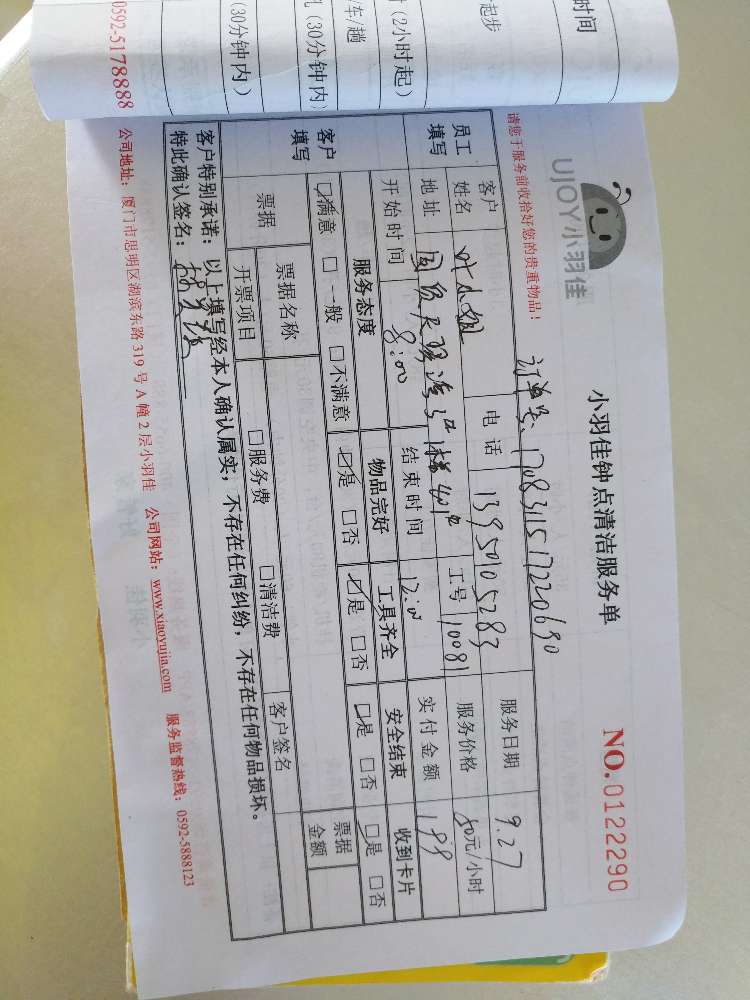 时间
起步
(2小时起)
/车/趟
(30分钟内)
(30分钟内)
0592-5178888
UJOY小羽佳
小羽佳钟点清洁服务单
NO.0122290
请您于服务前收拾好您的贵重物品!
订单号:170831517220690
员工填写
客户姓名 叶小姐 电话 13950105283 服务日期 9.27
地址 1楼401 工号 10081 服务价格 50元/小时
开始时间 8:00 结束时间 12:00 实付金额 199
客户填写
服务态度 物品完好 工具齐全 安全结束 收到卡片
☑满意 □一般 □不满意 ☑是 □否 ☑是 □否 ☑是 □否 ☑是 □否
票据 票据名称 客户签名 票据金额
开票项目 □服务费 □清洁费
客户特别承诺:以上填写经本人确认属实,不存在任何纠纷,不存在任何物品损坏。
特此确认签名:
公司地址:厦门市思明区湖滨东路319号A幢2层小羽佳 公司网站:www.xiaoyujia.com 服务监督热线:0592-5888123